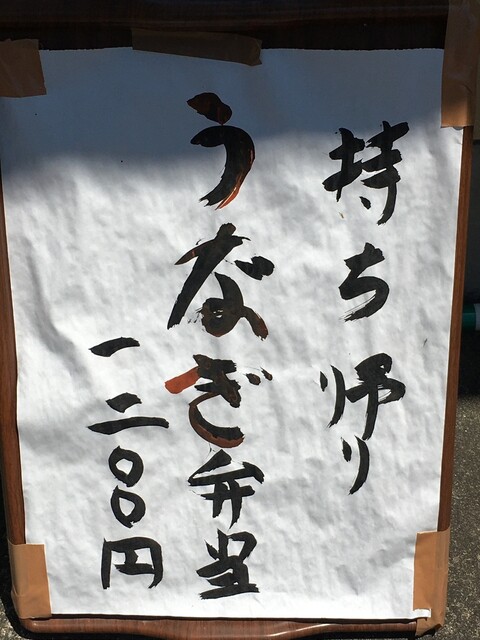 持ち帰り
うなぎ弁当
一二〇〇円